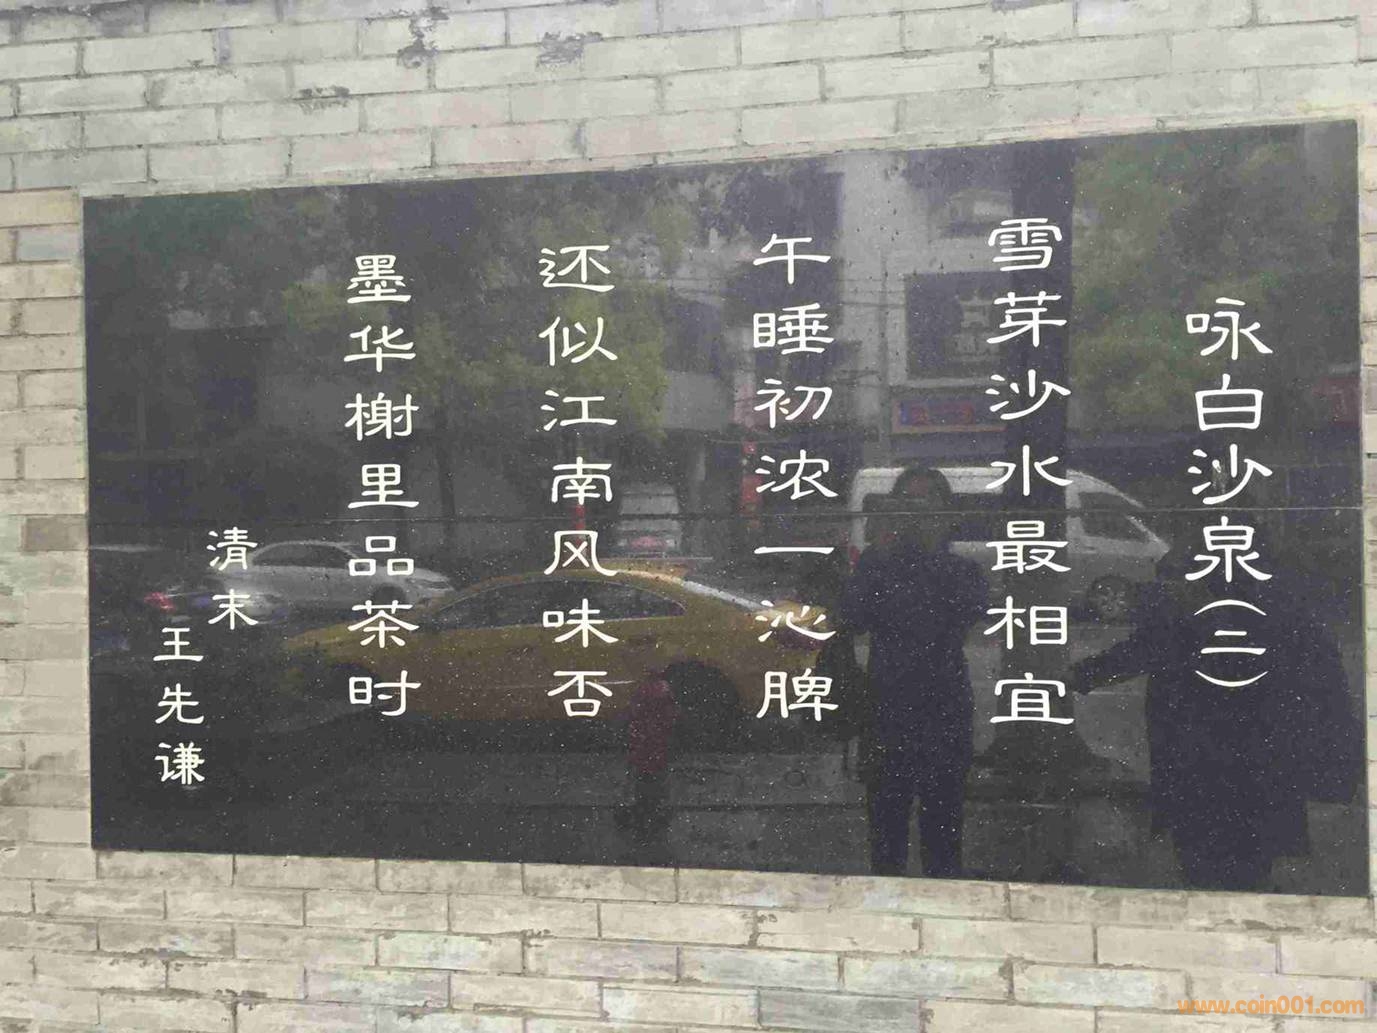 咏白沙泉(二)
雪芽沙水最相宜
午睡初浓一沁脾
还似江南风味否
墨华榭里品茶时
清末
王先谦
www.coin001.com